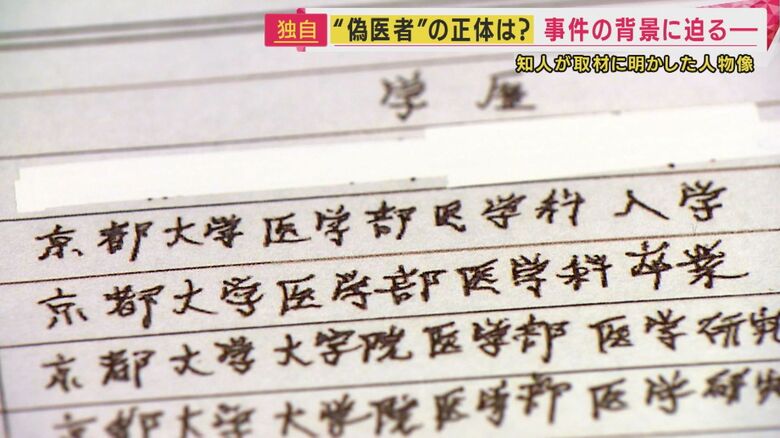 独自 “偽医者”の正体は？ 事件の背景に迫る―
知人が取材に明かした人物像
学歴
京都大学医学部医学科 入学
京都大学医学部医学科卒業
京都大学大学院医学部 医学研究
京都大学大学院医学部 医学研究